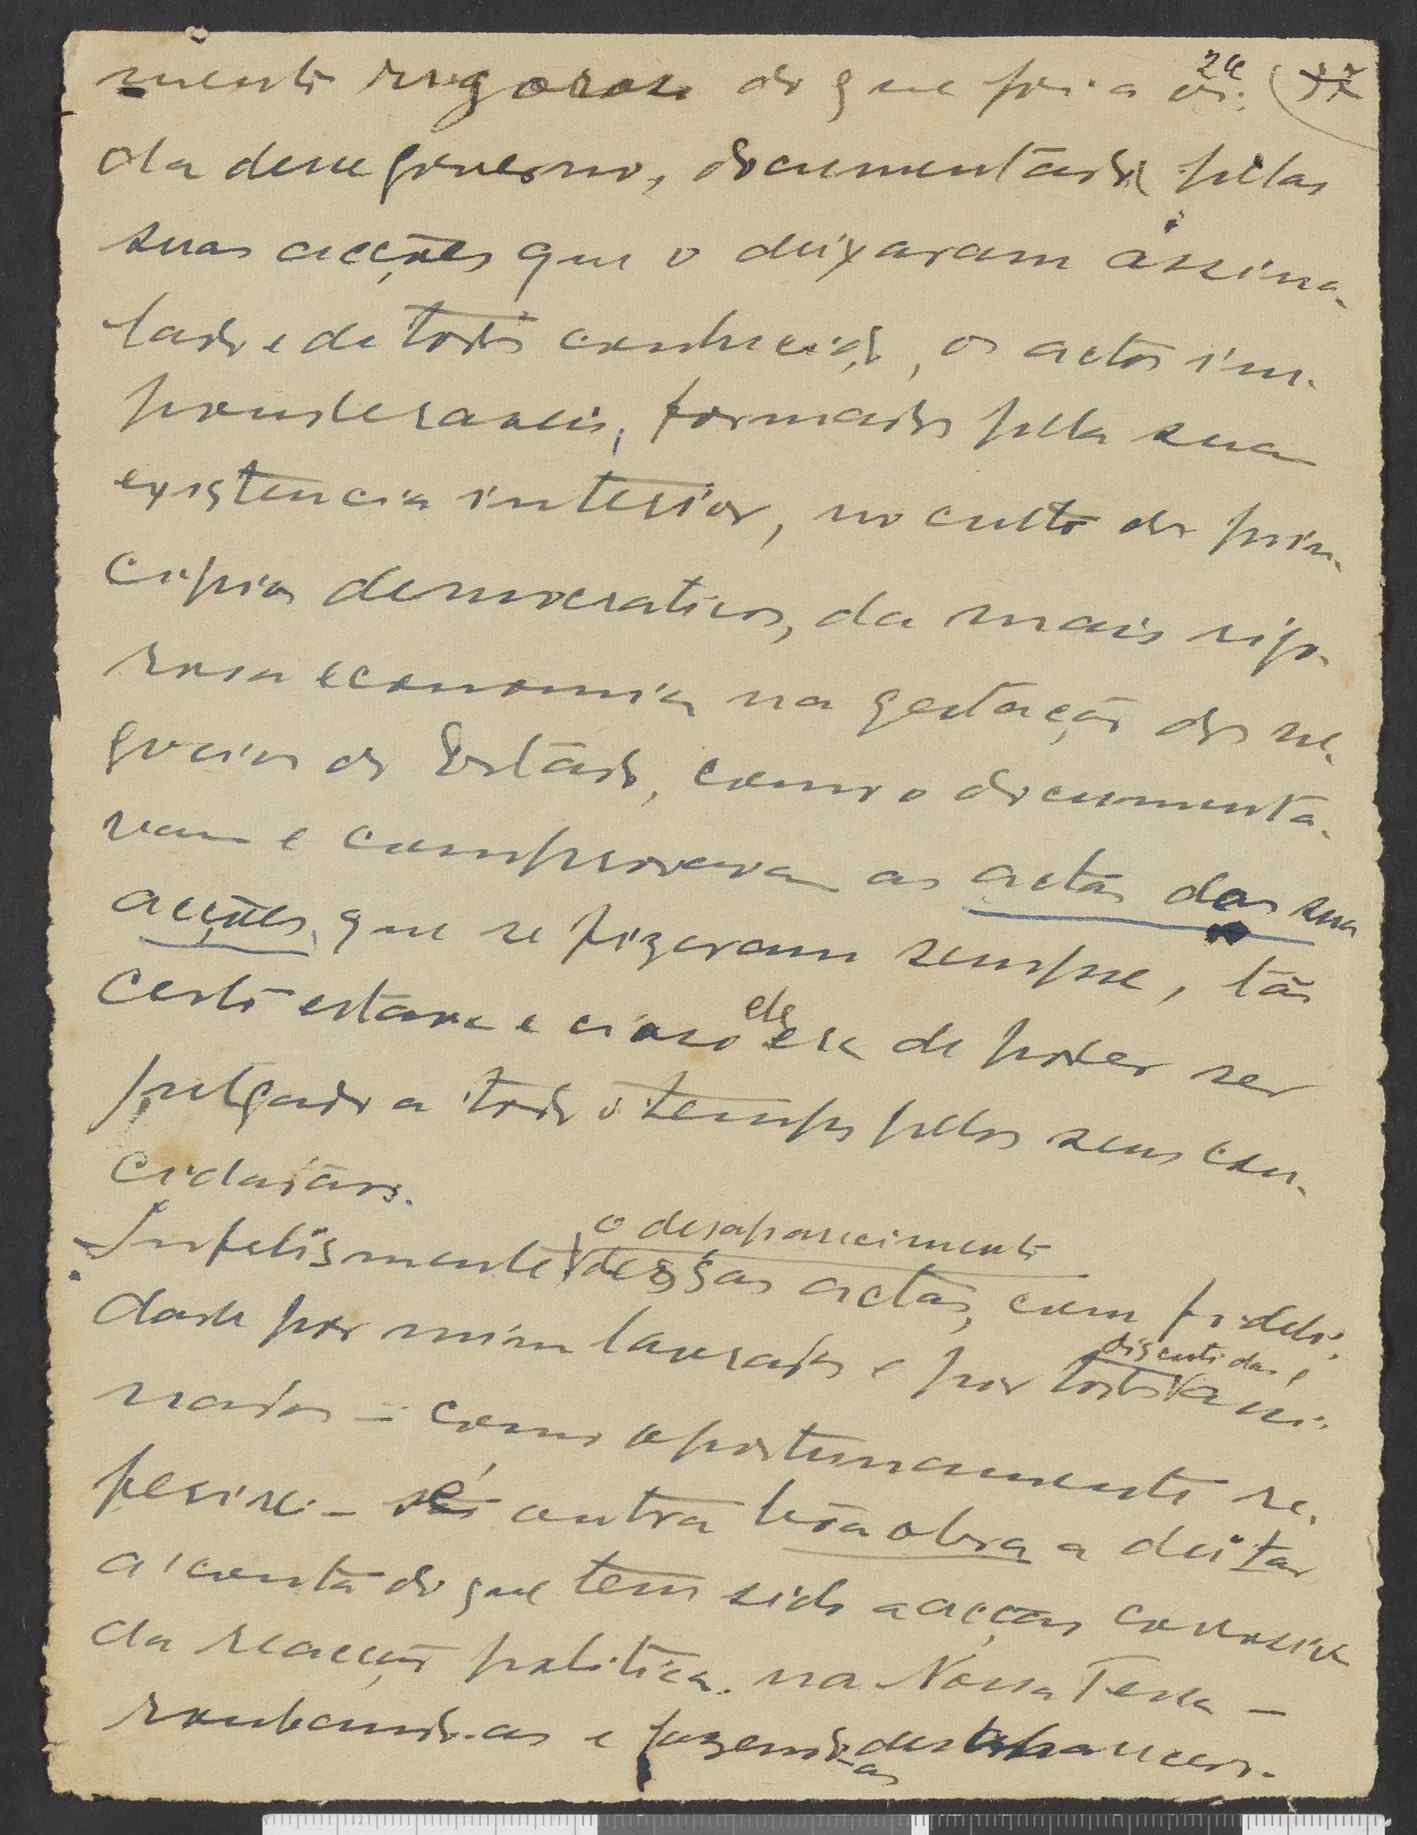 mento rigoroso do que foi a vi-
24
da desse governo, documentada pelas
suas acções que o deixaram assina-
lado e de todos conhecido, os actos im-
ponderaveis, formados pela sua
existencia interior, no culto dos prin-
cipios democraticos, da mais rigo-
rosa economia na gestação dos ne-
gocios do Estado, como o documenta-
vam e comprovavam as actas das sua
acções, que se fizeram sempre, tão
certo estava e cioso ele era de poder ser
julgado a todo o tempo pelos seus con-
cidadãos.
Infelismente o desaparecimento
dessas actas, com fideli-
dade por mim lavradas e por todos discutidas e assi-
nadas - como oportunamente re-
ferirei - é outra bôa obra a deitar
á conta do que tem sido a acção corrosiva
da reacção politica na Nossa Terra -
roubando-as e fazendo-as desaparecer.